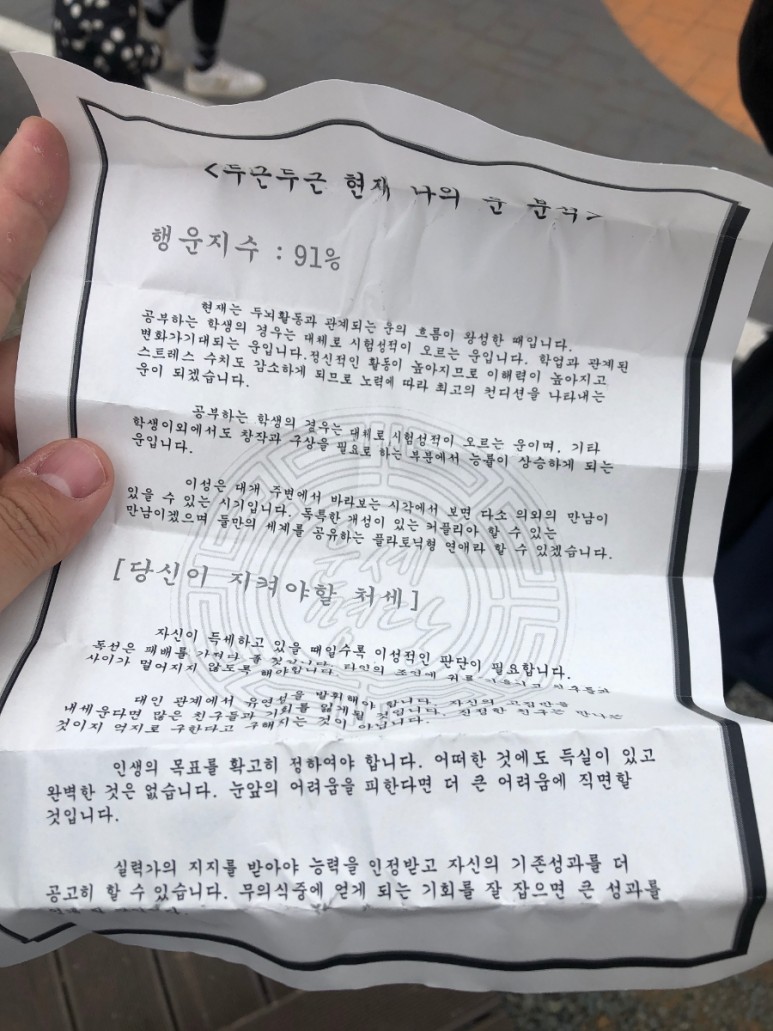 <두근두근 현재 나의 운 분석>
행운지수 : 91%
현재는 두뇌활동과 관계되는 운의 흐름이 왕성한 때입니다.
공부하는 학생의 경우는 대체로 시험성적이 오르는 운입니다. 학업과 관계된
변화가기대되는 운입니다.정신적인 활동이 높아지므로 이해력이 높아지고
스트레스 수치도 감소하게 되므로 노력에 따라 최고의 컨디션을 나타내는
운이 되겠습니다.
공부하는 학생의 경우는 대체로 시험성적이 오르는 운이며, 기타
학생이외에서도 창작과 구상을 필요로 하는 부분에서 능률이 상승하게 되는
운입니다.
이성은 대개 주변에서 바라보는 시각에서 보면 다소 의외의 만남이
있을 수 있는 시기입니다. 독특한 개성이 있는 커플리아 할 수 있는
만남이겠으며 둘만의 세계를 공유하는 플라토닉형 연애라 할 수 있겠습니다.
[당신이 지켜야할 처세]
자신이 득세하고 있을 때일수록 이성적인 판단이 필요합니다.
독선은 패배를 가져다 줄 것입니다. 타인의 조언에 귀를
사이가 멀어지지 않도록 해야합니다.
대인 관계에서 유연성을 발휘해야 합니다. 자신의 고집만을
내세운다면 많은 친구들과 기회를 잃게될 것입니다. 진정한 친구는 만나는
것이지 억지로 구한다고 구해지는 것이 아닙니다.
인생의 목표를 확고히 정하여야 합니다. 어떠한 것에도 득실이 있고
완벽한 것은 없습니다. 눈앞의 어려움을 피한다면 더 큰 어려움에 직면할
것입니다.
실력가의 지지를 받아야 능력을 인정받고 자신의 기존성과를 더
공고히 할 수 있습니다. 무의식중에 얻게 되는 기회를 잘 잡으면 큰 성과를